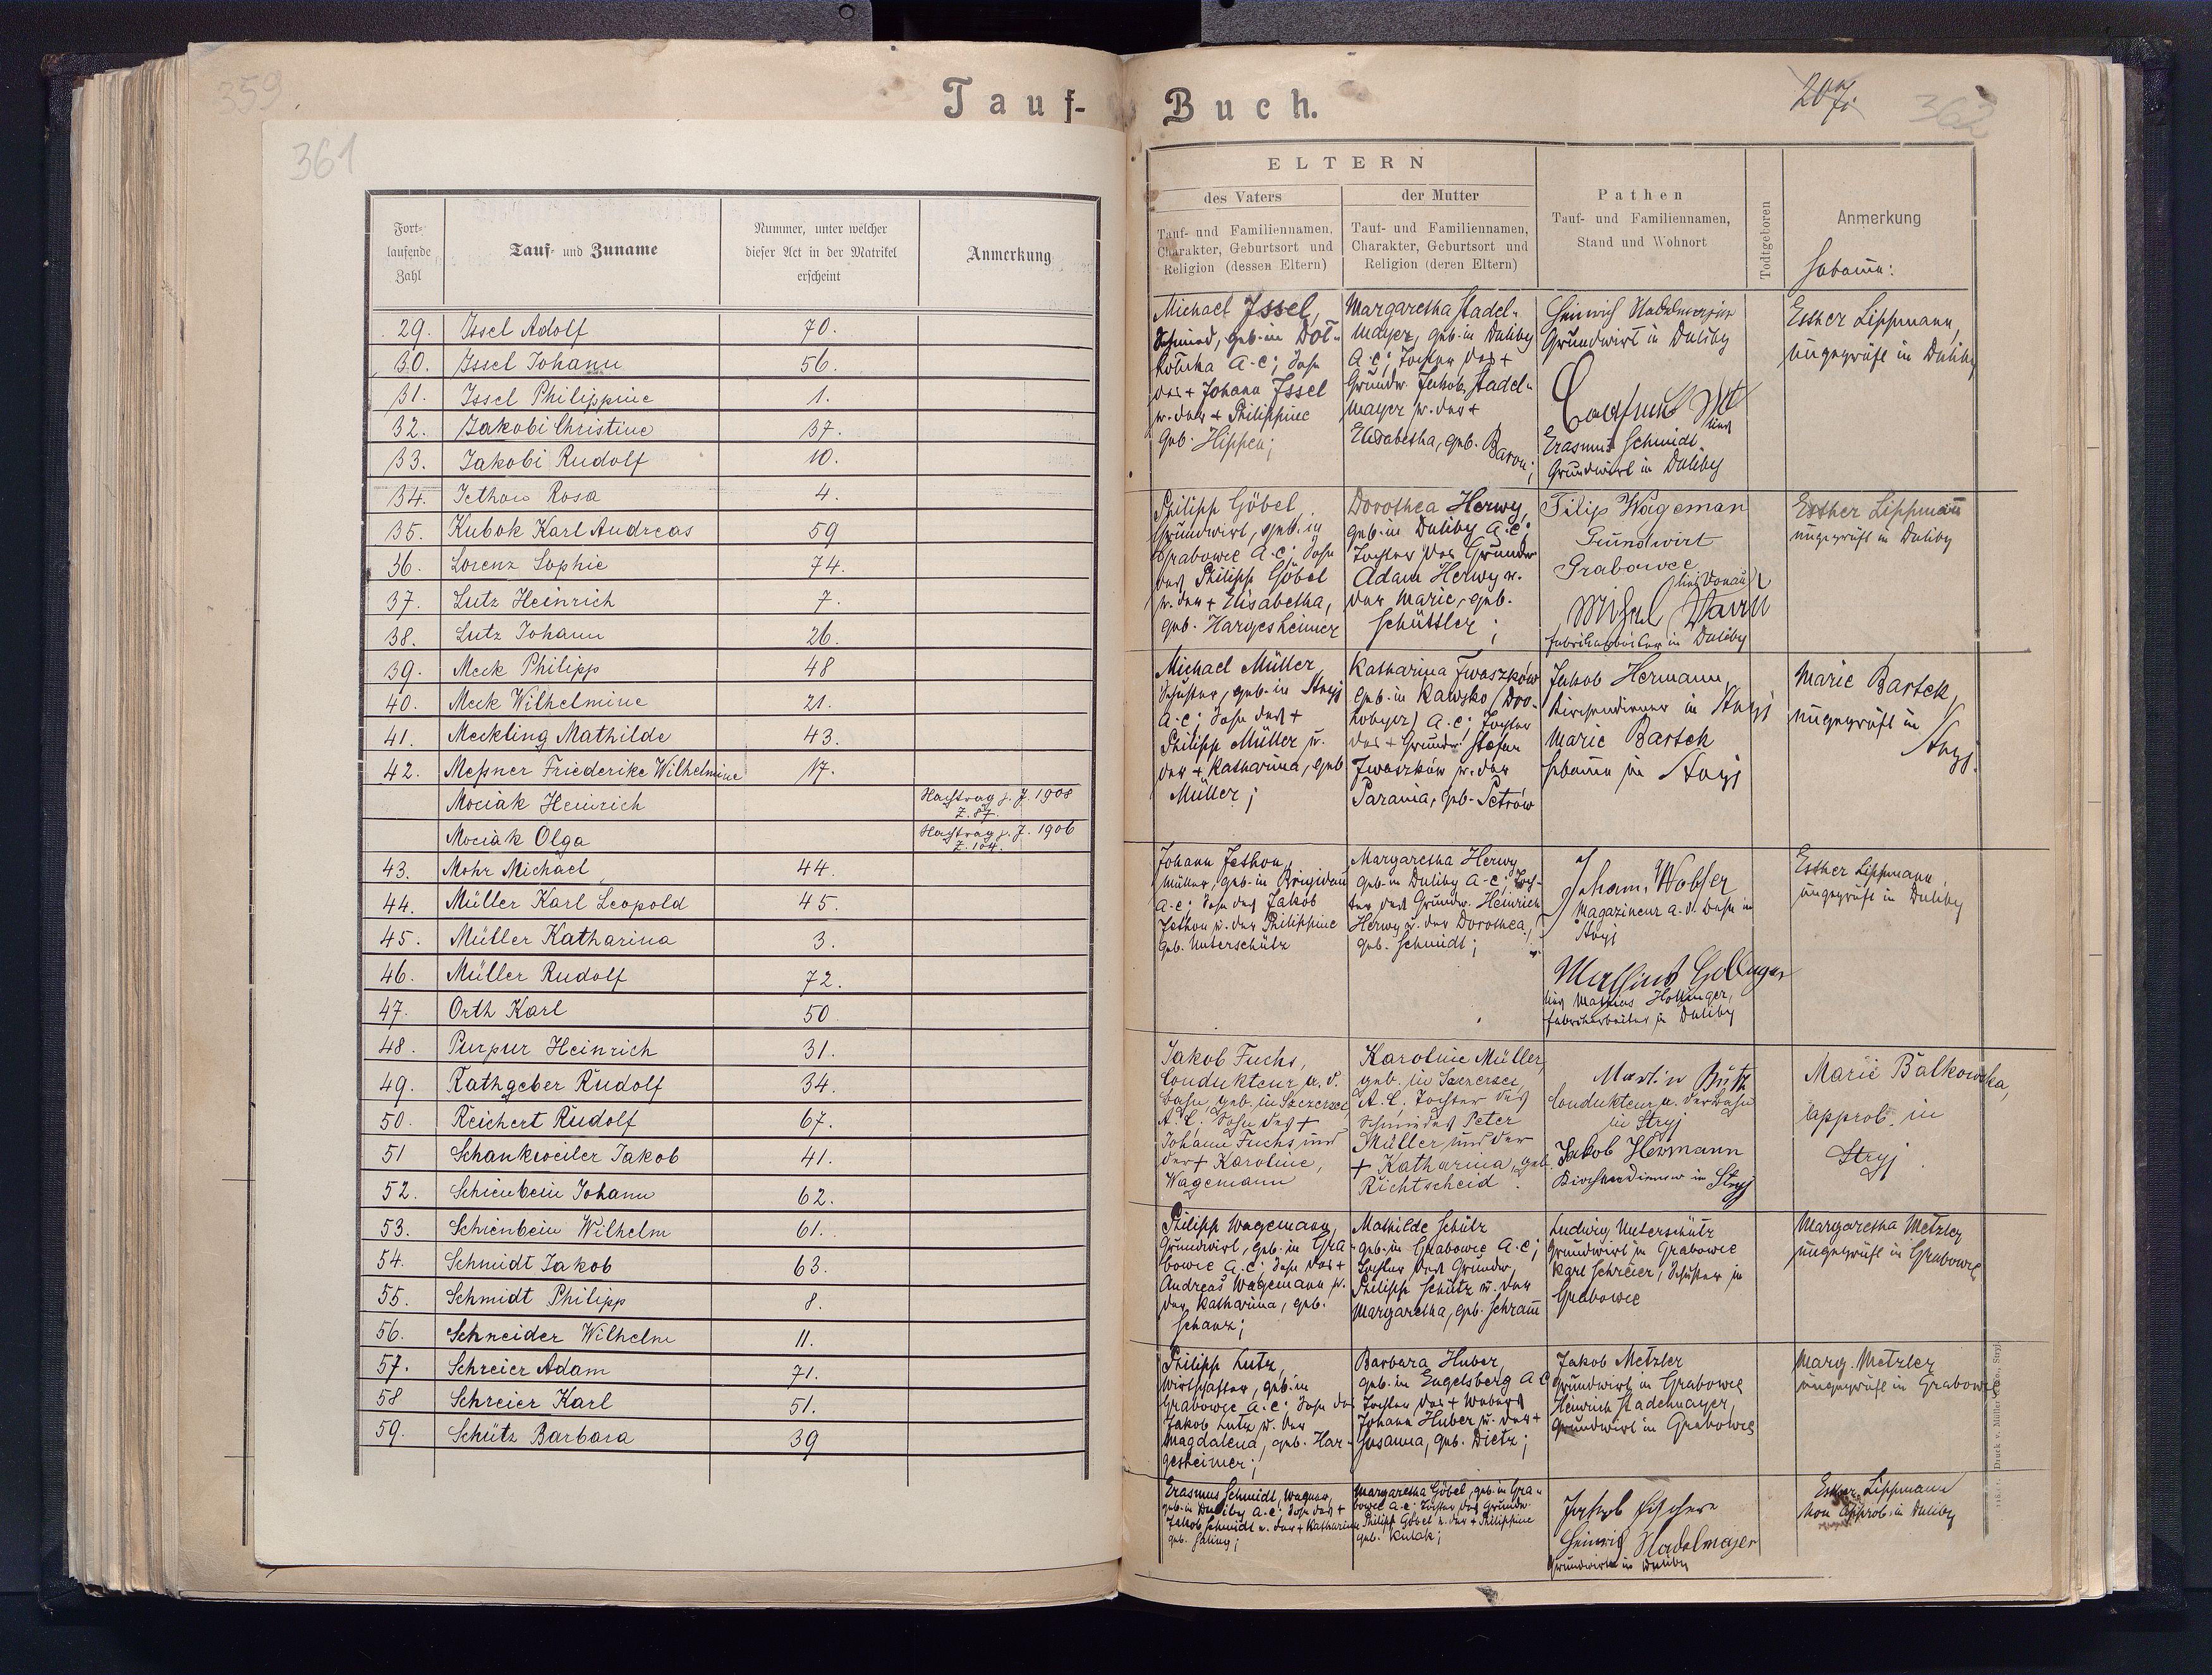 359.
Tauf-Buch.
207.
362
361
Fort-
laufende
Zahl
Tauf- und Zuname
Nummer, unter welcher
dieser Act in der Matrikel
erscheint
Anmerkung
29. Issel Adolf 70.
30. Issel Johann 56.
31. Issel Philippine 1.
32. Jakobi Christine 37.
33. Jakobi Rudolf 10.
34. Jethon Rosa 4.
35. Kubok Karl Andreas 59
36. Lorenz Sophie 74.
37. Lutz Heinrich 7.
38. Lutz Johann 26.
39. Meck Philipp 48
40. Meck Wilhelmine 21.
41. Meckling Mathilde 43.
42. Meßner Friederike Wilhelmine 17.
Mociak Heinrich Nachtrag z. J. 1908
Z. 87.
Mociak Olga Nachtrag z. J. 1906
Z. 104.
43. Mohr Michael 44.
44. Müller Karl Leopold 45.
45. Müller Katharina 3.
46. Müller Rudolf 72.
47. Orth Karl 50.
48. Purpur Heinrich 31.
49. Rathgeber Rudolf 34.
50. Reichert Rudolf 67.
51 Schankweiler Jakob 41.
52. Schienbein Johann 62.
53. Schienbein Wilhelm 61.
54. Schmidt Jakob 63.
55. Schmidt Philipp 8.
56. Schneider Wilhelm 11.
57. Schreier Adam 71.
58 Schreier Karl 51.
59. Schütz Barbara 39
ELTERN
des Vaters
Tauf- und Familiennamen,
Charakter, Geburtsort und
Religion (dessen Eltern)
der Mutter
Tauf- und Familiennamen,
Charakter, Geburtsort und
Religion (deren Eltern)
Pathen
Tauf- und Familiennamen,
Stand und Wohnort
Todtgeboren
Anmerkung
Hebamme:
Michael Issel,
Schmied, geb. in
A.C; Sohn
des + Johann Issel
u. der + Philippine
geb. Hippen;
Margaretha Stadel-
mayer, geb. in Duliby
A.C; Tochter des +
Grundw. Jakob Stadel-
mayer u. der +
Elisabetha, geb. Baron;
Heinrich Stadelmayer
Grundwirt in Duliby
Erasmus Schmidt
Grundwirt in Duliby
Esther Lippmann,
ungeprüft in Duliby
Philipp Göbel,
Grundwirt, geb. in
Grabowce A.C; Sohn
des Philipp Göbel
u. der + Elisabetha,
geb. Hargesheimer
Dorothea Herwy,
geb. in Duliby A.C;
Tochter des Grundw.
Adam Herwy u.
der Marie, geb.
Schüttler;
Filip Wageman
Gundwirt
Grabowce
Fabriksarbeiter in Duliby
Esther Lippmann
ungeprüft in Duliby
Michael Müller,
Schuster, geb. in Stryj
A.C; Sohn des +
Philipp Müller u.
der + Katharina, geb.
Müller;
Katharina Iwaszków
geb. in Rawsko (Dro-
hobycz) A.C; Tochter
des + Grundw. Stefan
Iwaszków u. der
Parania, geb. Petrów
Jakob Hermann,
Kirchendiener in Stryj
Marie Bartek
Hebamme in Stryj
Marie Bartek,
ungeprüft in
Stryj.
Johann Jethon,
Müller, geb. in Brigidau
A.C; Sohn des Jakob
Jethon u. der Philippine
geb. Unterschütz
Margaretha Herwy
geb. in Duliby A.C; Toch-
ter des Grundw. Heinrich
Herwy u. der Dorothea,
geb. Schmidt;
Johann Wobser
Magazineur a. d. Bahn in
Stryj
Mathias Hollinger,
Fabriksarbeiter in Duliby
Esther Lippmann
ungeprüft in Duliby
Jakob Fuchs,
Condukteur a. d.
Bahn, geb. in Szczerzec
A.C. Sohn des +
Johann Fuchs und
der + Karoline,
Wagemann
Karoline Müller,
geb. in Szczerzec,
A.C. Tochter des
Schmiedes Peter
Müller und der
+ Katharina, geb.
Richtscheid.
Martin Butz
Condukteur a. der Bahn
in Stryj
Jakob Hermann
Kirchendiener in Stryj
Marie Balkowska,
approb. in
Stryj.
Philipp Wagemann,
Grundwirt, geb. in Gra-
bowce A.C; Sohn des +
Andreas Wagemann u.
der Katharina, geb.
Schanz;
Mathilde Schütz
geb. in Grabowce A.C;
Tochter des Grundw.
Philipp Schütz u. der
Margaretha, geb. Schram
Ludwig Unterschütz
Grundwirt in Grabowce
Karl Schreier, Schuster in
Grabowce
Margaretha Metzler
ungeprüft in Grabowce
Philipp Lutz,
Wirtschafter, geb. in
Grabowce A.C; Sohn des
Jakob Lutz u. der
Magdalena, geb. Har-
gesheimer;
Barbara Huber,
geb. in Engelsberg A.C
Tochter des + Webers
Johann Huber u. der +
Susanna, geb. Dietz;
Jakob Metzler
Grundwirt in Grabowce
Heinrich Stadelmayer,
Grundwirt in Grabowce
Marg. Metzler
ungeprüft in Grabowce
Erasmus Schmidt, Wagner,
geb. in Duliby A.C; Sohn des +
Jakob Schmidt u. der + Katharina
geb. Haling;
Margaretha Göbel, geb. in Gra-
bowce A.C; Tochter des Grundw.
Philipp Göbel u. der + Philippine
geb. Kulak;
Jakob Fischer
Heinrich Stadelmajer
Grundwirte in Duliby
Esther Lippmann
non approb. in Duliby
Druck v. Müller & Co., Stryj.